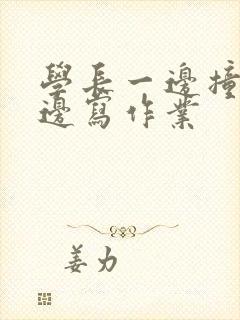 學長一邊撞
邊寫作業
姜力